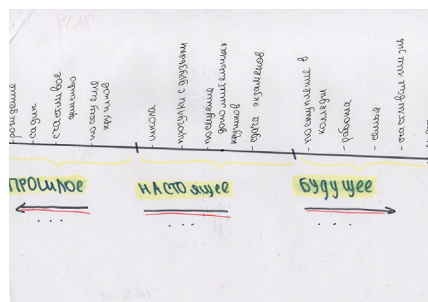 рождение
- садик
- счастливое
детство
- посещение
кружков
- школа
- прогулки с друзьями
- посещение
дополнительных
кружков
- сдача экзаменов
- поступление в
колледж
- работа
- семья
- счастливая жизнь
ПРОШЛОЕ
НАСТОЯЩЕЕ
БУДУЩЕЕ
...
...
...